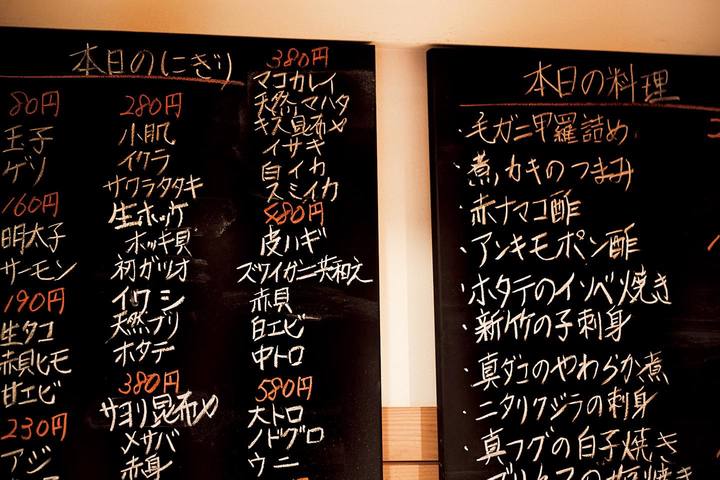 本日のにぎり
80円
玉子
ゲソ
160円
明太子
サーモン
190円
生タコ
赤貝ヒモ
甘エビ
230円
アジ
280円
小肌
イクラ
サワラタタキ
生ホッケ
ホッキ貝
初ガツオ
イワシ
天然ブリ
ホタテ
380円
サヨリ昆布〆
〆サバ
赤身
380円
マコカレイ
天然マハタ
キス昆布〆
イサキ
白イカ
スミイカ
480円
皮ハギ
ズワイガニ共和え
赤貝
白エビ
中トロ
580円
大トロ
ノドグロ
ウニ
本日の料理
・毛ガニ甲羅詰め
・煮カキのつまみ
・赤ナマコ酢
・アンキモポン酢
・ホタテのイソベ焼き
・新竹の子刺身
・真ダコのやわらか煮
・ニタリクジラの刺身
・真フグの白子焼き